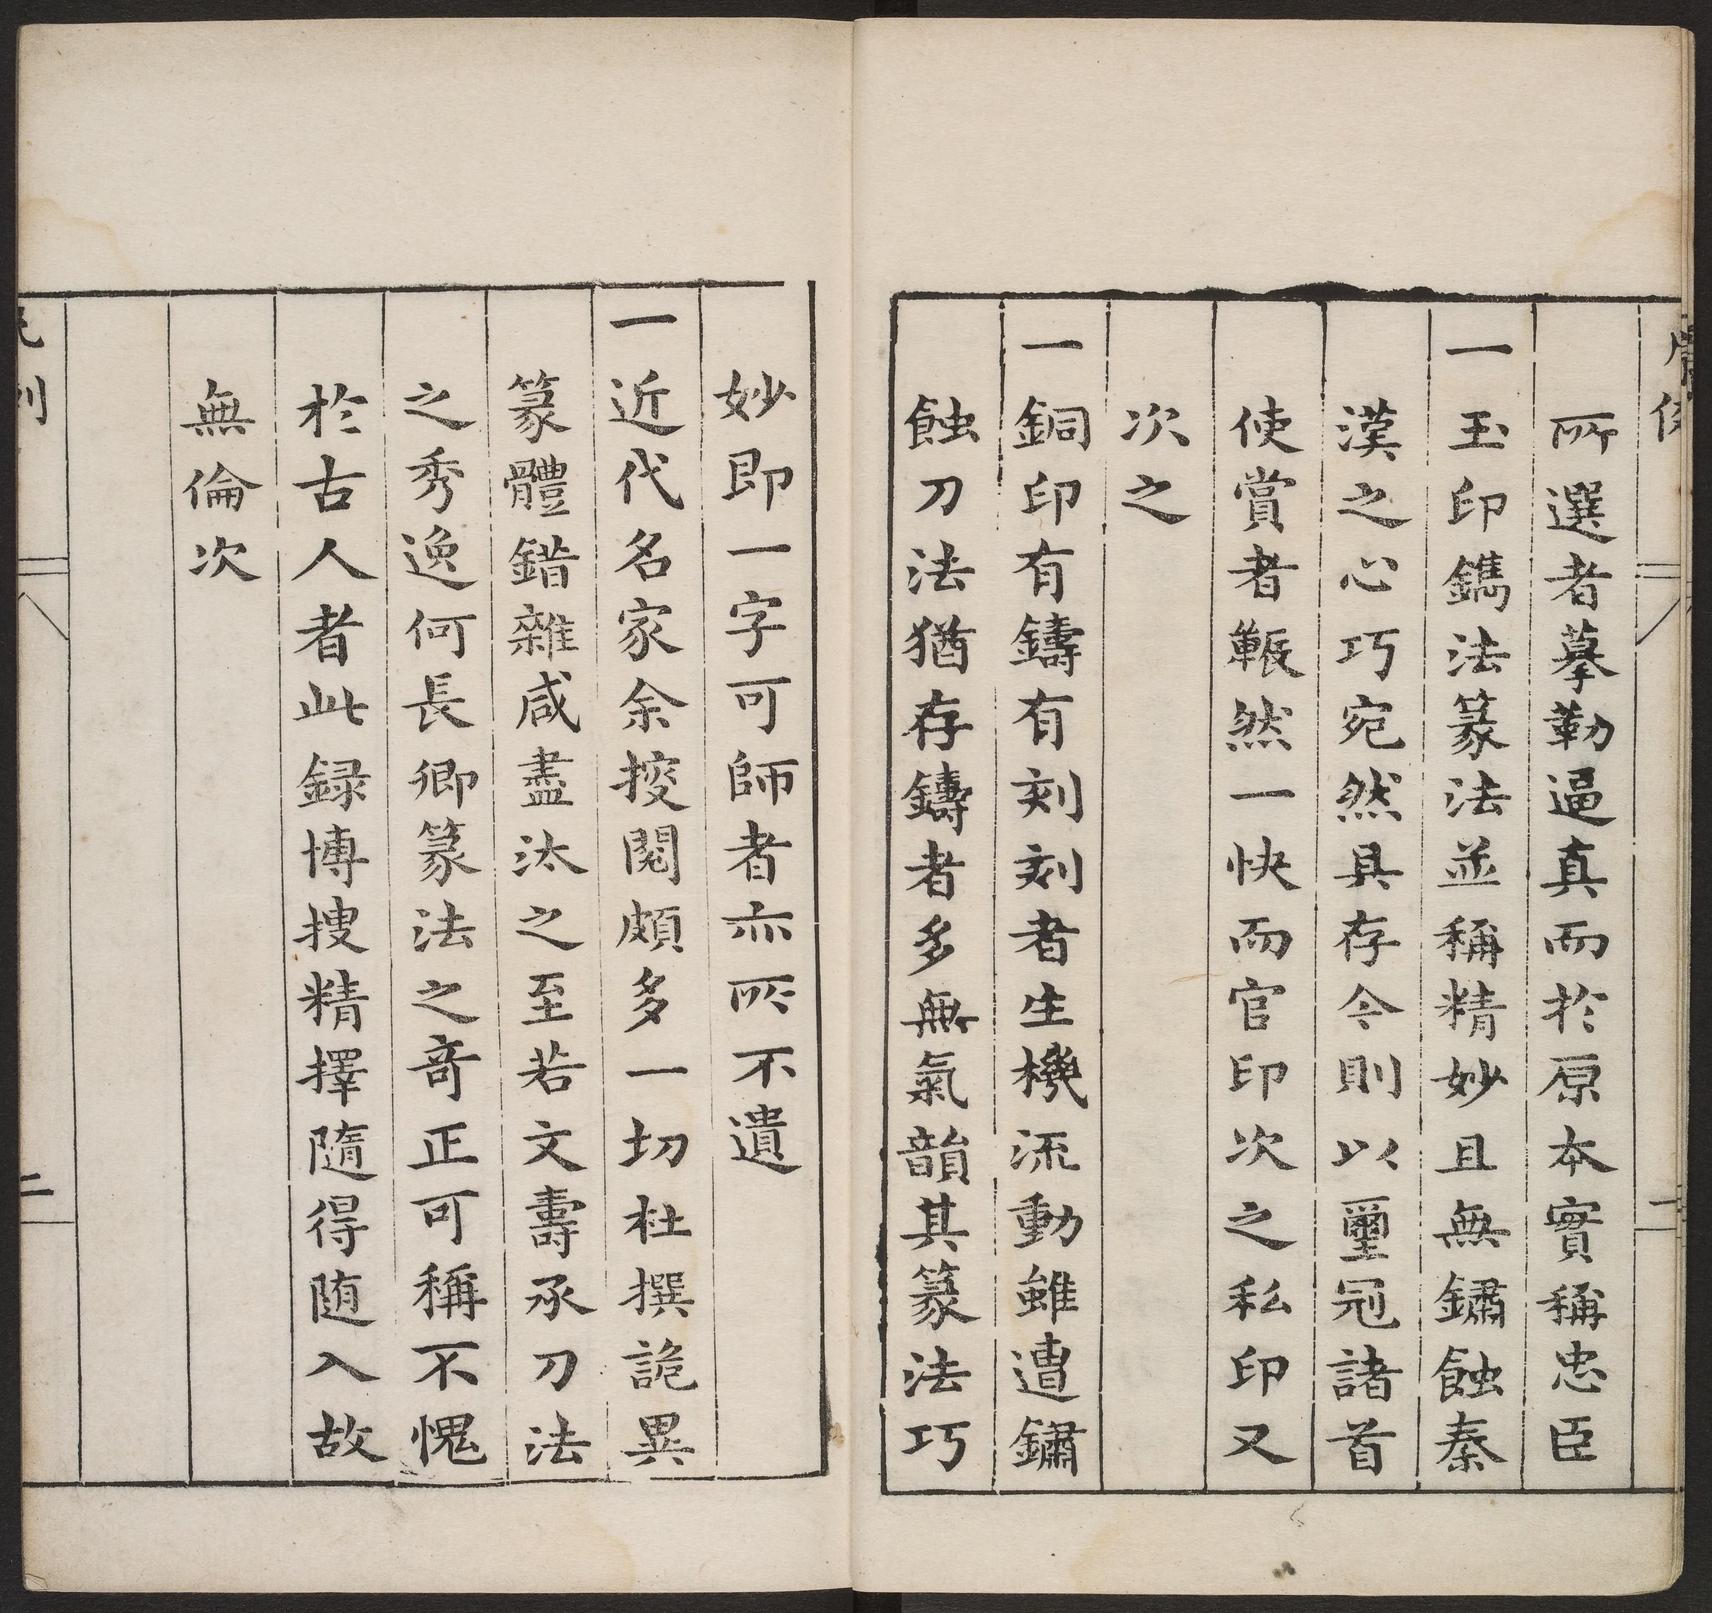 所選者摹勒逼真而於原本實稱忠臣
一玉印鐫法篆法並稱精妙且無鏽蝕秦
漢之心巧宛然具存今則以璽冠諸首
使賞者囅然一快而官印次之私印又
次之
一銅印有鑄有刻刻者生機流動雖遭鏽
蝕刀法猶存鑄者多無氣韻其篆法巧
妙即一字可師者亦所不遺
一近代名家余挍閱頗多一切杜撰詭異
篆體錯雜咸盡汰之至若文壽承刀法
之秀逸何長卿篆法之奇正可稱不愧
於古人者此録博搜精擇隨得随入故
無倫次
二